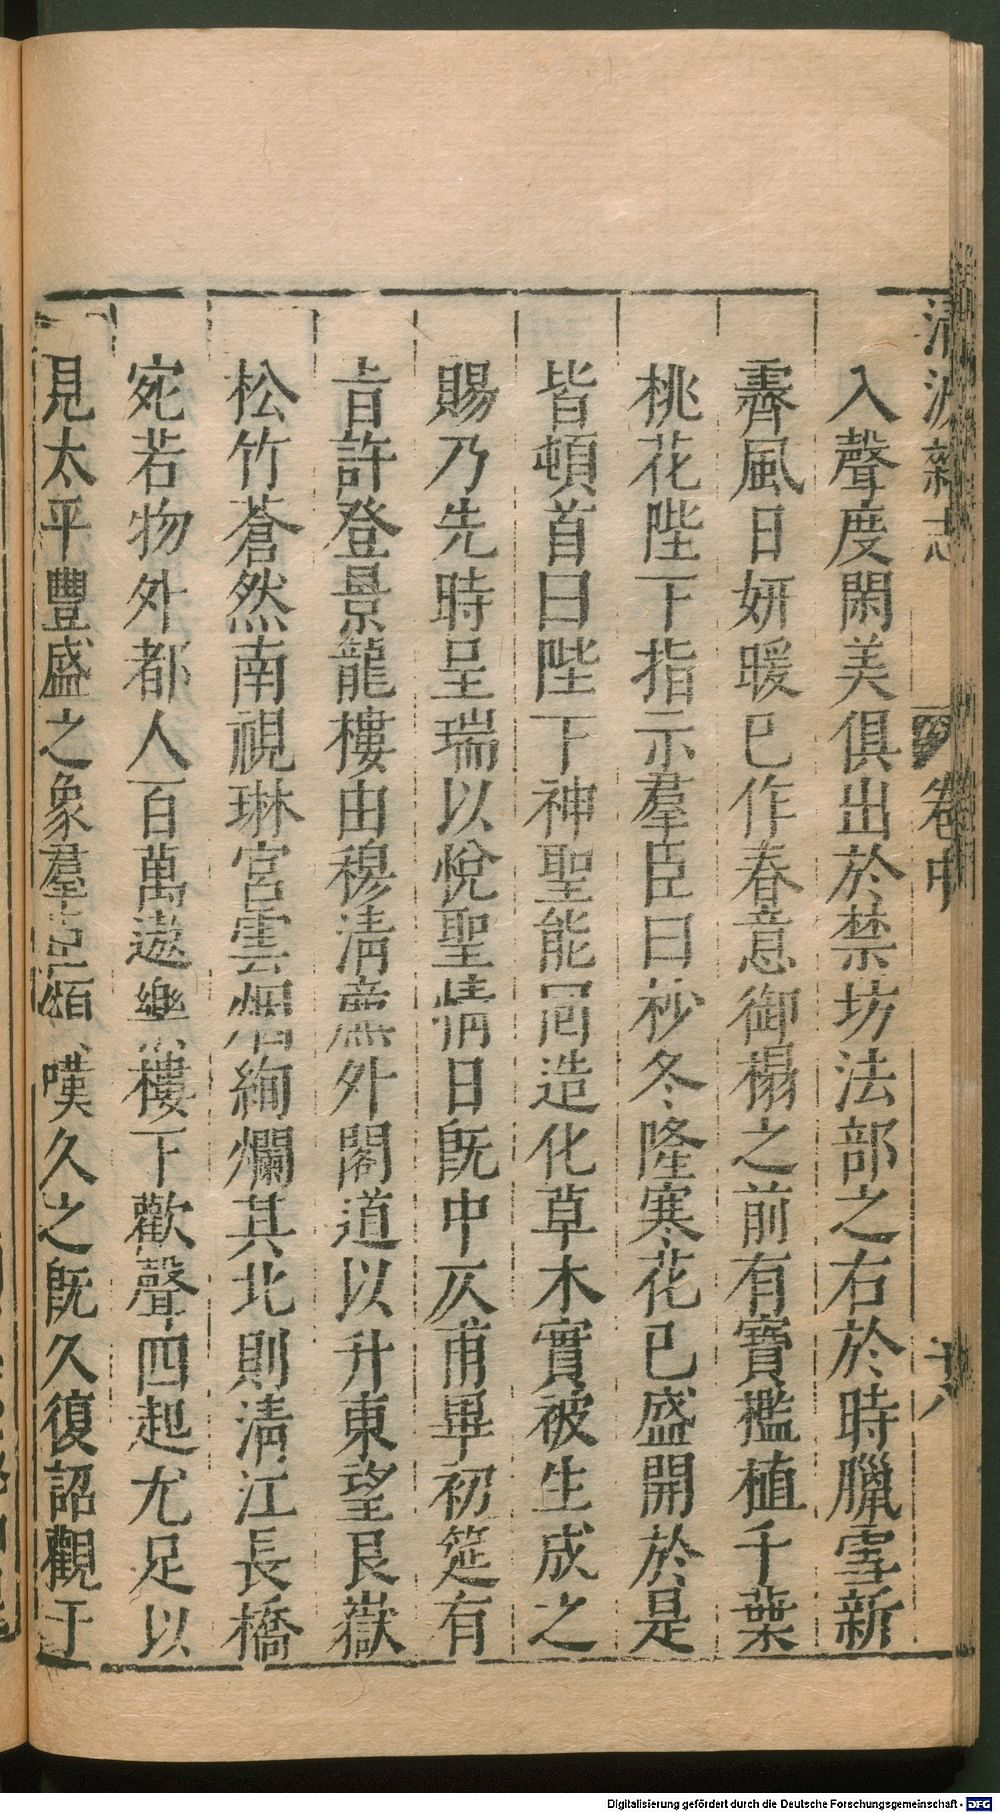 清波雜志 卷中 十八
入聲度閑美俱出於禁坊法部之右於時臘雪新
霽風日妍暖已作春意御榻之前有寶檻植千葉
桃花陛下指示羣臣曰杪冬隆寒花已盛開於是
皆頓首曰陛下神聖能囘造化草木實被生成之
賜乃先時呈瑞以悅聖情日旣中仄甫畢初筵有
旨許登景龍樓由穆淸廡外閣道以升東望艮嶽
松竹蒼然南視琳宮雲烟絢爛其北則淸江長橋
宛若物外都人百萬遨樂樓下歡聲四起尤足以
見太平豐盛之象羣臣頌嘆久之旣久復詔觀于
Digitalisierung gefördert durch die Deutsche Forschungsgemeinschaft - DFG